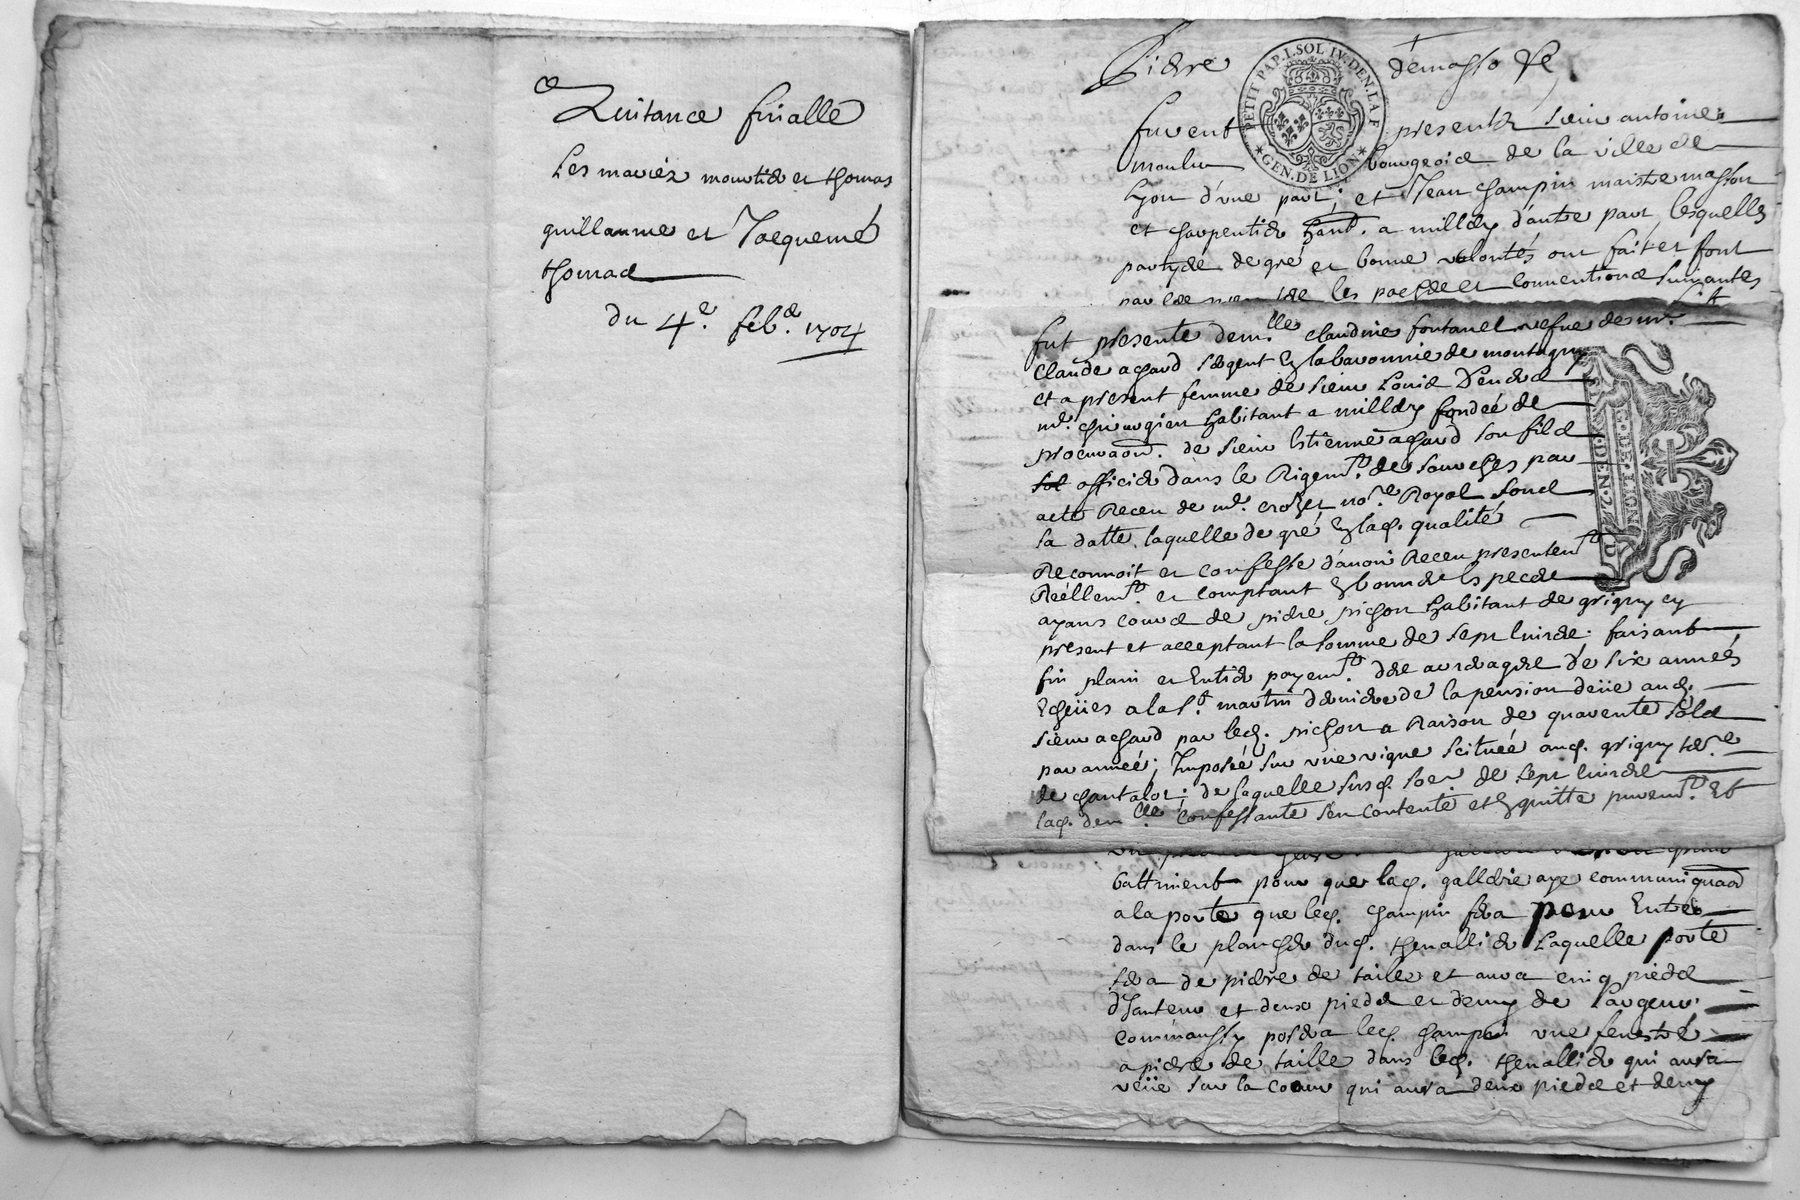 Quitance finalle
Les mariez mourtier et thomas
guillaume et Jacquemé
thomas
du 4e. feb.e 1704
Pierre demasso
PETIT PAP. I. SOL IV. DEN. LA. F
GEN. DE LION
furent presents sieur antoine
moulin bourgeois de la ville de
Lyon d'une part, et Jean champin maistre masson
et charpentier habt. a millery d'autre part, lesquelles
partyes de gré et bonne volontés ont fait et font
les pacches et conventions suivantes
fut presente demlle claudine fontanel vefue de mr.
Claude achard sergent en la baronnie de montagny
et a present femme de sieur Louis
mr. chirurgien habitant a millery fondée de
procuraon. de sieur Estienne achard son fils
officier dans le Regemt. de par
acte Receu de me. crozet nore. Royal sous
sa datte, laquelle de gré en lad. qualité
Reconnoit et confesse d'avoir Receu presentemt
Réellemt. et comptant en bonnes especes
ayans cours de pierre pichon habitant de grigny cy
present et acceptant la somme de sept livres. faisant
fin plain et Entier payemt. des arrerages de six années
Echeües a la st. martin derniere de la pension deüe aud.
sieur achard par led. pichon a Raison de quarente sols
par année; Imposée sur une vigne scituée aud. grigny terre.
de chantalot; de laquelle susd. some de sept livres
lad. demlle confessante s'en contente et en quitte puremt. Et
E. DE. LION
D. DEN. N
battiment pour que lad. gallerie aye communiquaon
a la porte que led. champin fera pour Entrer
dans le plancher dud. thenallier Laquelle porte
sera de pierre de taile et aura cinq pieds
d'hauteur et deux pieds et demy de Largeur;
comm'aussy posera led. champin une fenestre
a pierre de taille dans led. thenallier qui aura
veüe sur la cour qui aura deux pieds et demy